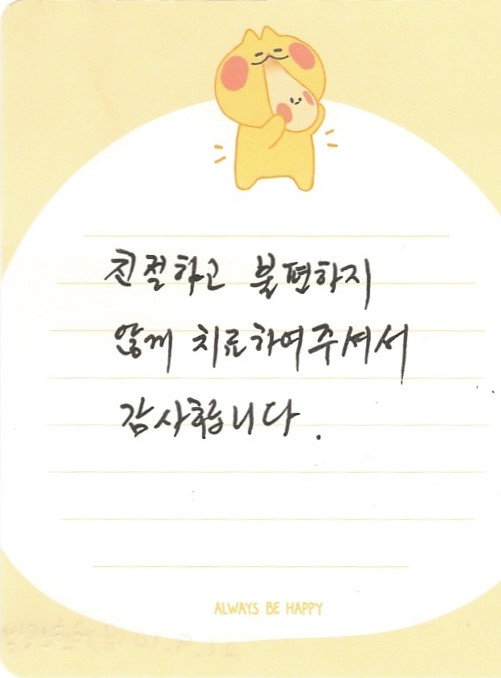 친절하고 불편하지
않게 치료하여주셔서
감사합니다.
ALWAYS BE HAPPY